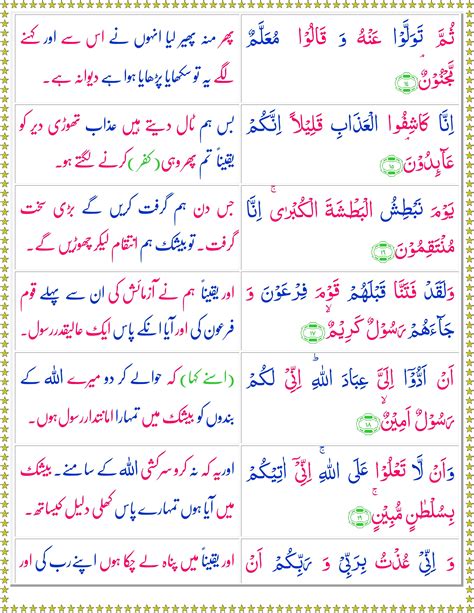 ثُمَّ تَوَلَّوْا عَنْهُ وَ قَالُوْا مُعَلَّمٌ
مَّجْنُوْنٌ ﴿۱۴﴾
پھر منہ پھیر لیا انہوں نے اس سے اور کہنے
لگے یہ تو سکھایا پڑھایا ہوا ہے دیوانہ ہے۔
اِنَّا كَاشِفُوا الْعَذَابِ قَلِيْلًا اِنَّكُمْ
عَآئِدُوْنَ ﴿۱۵﴾
بس ہم ٹال دیتے ہیں عذاب تھوڑی دیر کو
یقیناً تم پھر وہی (کفر) کرنے لگتے ہو۔
يَوْمَ نَبْطِشُ الْبَطْشَةَ الْكُبْرٰى ۚ اِنَّا
مُنْتَقِمُوْنَ ﴿۱۶﴾
جس دن ہم گرفت کریں گے بڑی سخت
گرفت۔ تو بیشک ہم انتقام لیکر چھوڑیں گے۔
وَلَقَدْ فَتَنَّا قَبْلَهُمْ قَوْمَ فِرْعَوْنَ وَ
جَآءَهُمْ رَسُوْلٌ كَرِيْمٌ ۙ﴿۱۷﴾
اور یقیناً ہم نے آزمائش کی ان سے پہلے قوم
فرعون کی اور آیا انکے پاس ایک عالیقدر رسول۔
اَنْ اَدُّوْۤا اِلَىَّ عِبَادَ اللّٰهِ ؕ اِنِّىْ لَكُمْ
رَسُوْلٌ اَمِيْنٌ ۙ﴿۱۸﴾
(اسنے کہا) کہ حوالے کر دو میرے اللہ کے
بندوں کو بیشک میں تمہارا امانتدار رسول ہوں۔
وَاَنْ لَّا تَعْلُوْا عَلَى اللّٰهِ ۚ اِنِّىْۤ اٰتِيْكُمْ
بِسُلْطٰنٍ مُّبِيْنٍ ۚ﴿۱۹﴾
اور یہ کہ نہ کرو سرکشی اللہ کے سامنے۔ بیشک
میں آیا ہوں تمہارے پاس کھلی دلیل کیساتھ۔
وَ اِنِّىْ عُذْتُ بِرَبِّىْ وَ رَبِّكُمْ اَنْ
اور یقیناً میں پناہ لے چکا ہوں اپنے رب کی اور